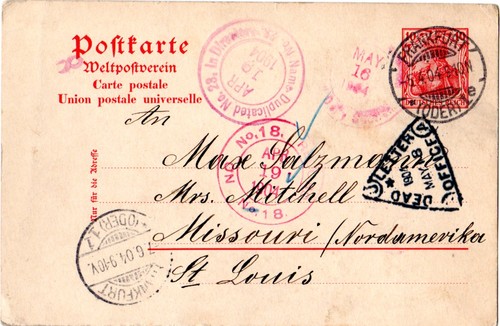 Postkarte
Weltpostverein
Carte postale
Union postale universelle
Nur für die Adresse
An
Max Salzmann
Mrs. Mitchell
Missouri /Nordamerika
St Louis
No. 28.
APR
19
1904
MAY
16
1904
FRANKFURT
(ODER)
No. 18.
APR
19
1904
No. 18.
DEAD LETTER OFFICE
MAY
1904
FRANKFURT
(ODER)
6.04.9-10V.